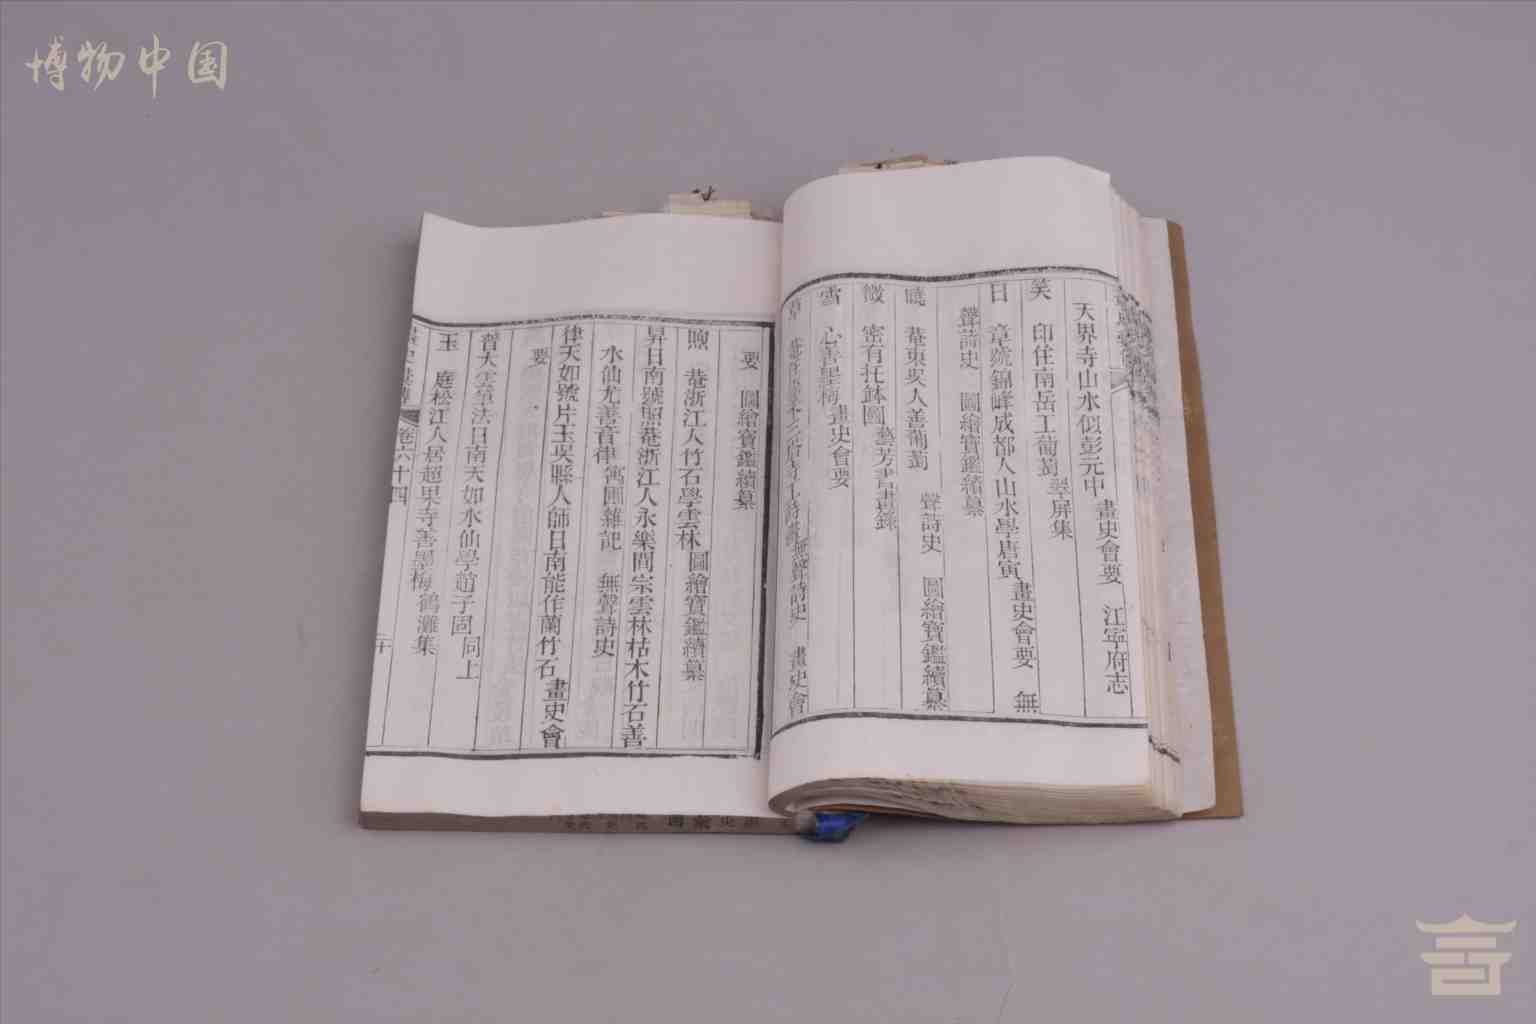 博物中国
天界寺山水似彭元中 畫史會要 江寧府志
笑 印住南岳工葡萄 翠屏集
日 章號錦峰成都人山水學唐寅 畫史會要 無
聲詩史 圖繪寶鑑續纂
曉 菴東吳人善葡萄 聲詩史 圖繪寶鑑續纂
微 密有托鉢圖 藝芳書畫錄
雪 心善墨梅 畫史會要
無聲詩史 畫史會
要 圖繪寶鑑續纂
煦 菴浙江人竹石學雲林 圖繪寶鑑續纂
昇日南號照菴浙江人永樂間宗雲林枯木竹石善
水仙尤善音律 寓圃雜記 無聲詩史
律天如號片玉吳縣人師日南能作蘭竹石 畫史會
要
大雲筆法日南天如水仙學趙子固 同上
玉 庭松江人居超果寺善墨梅 鶴灘集
卷六十四